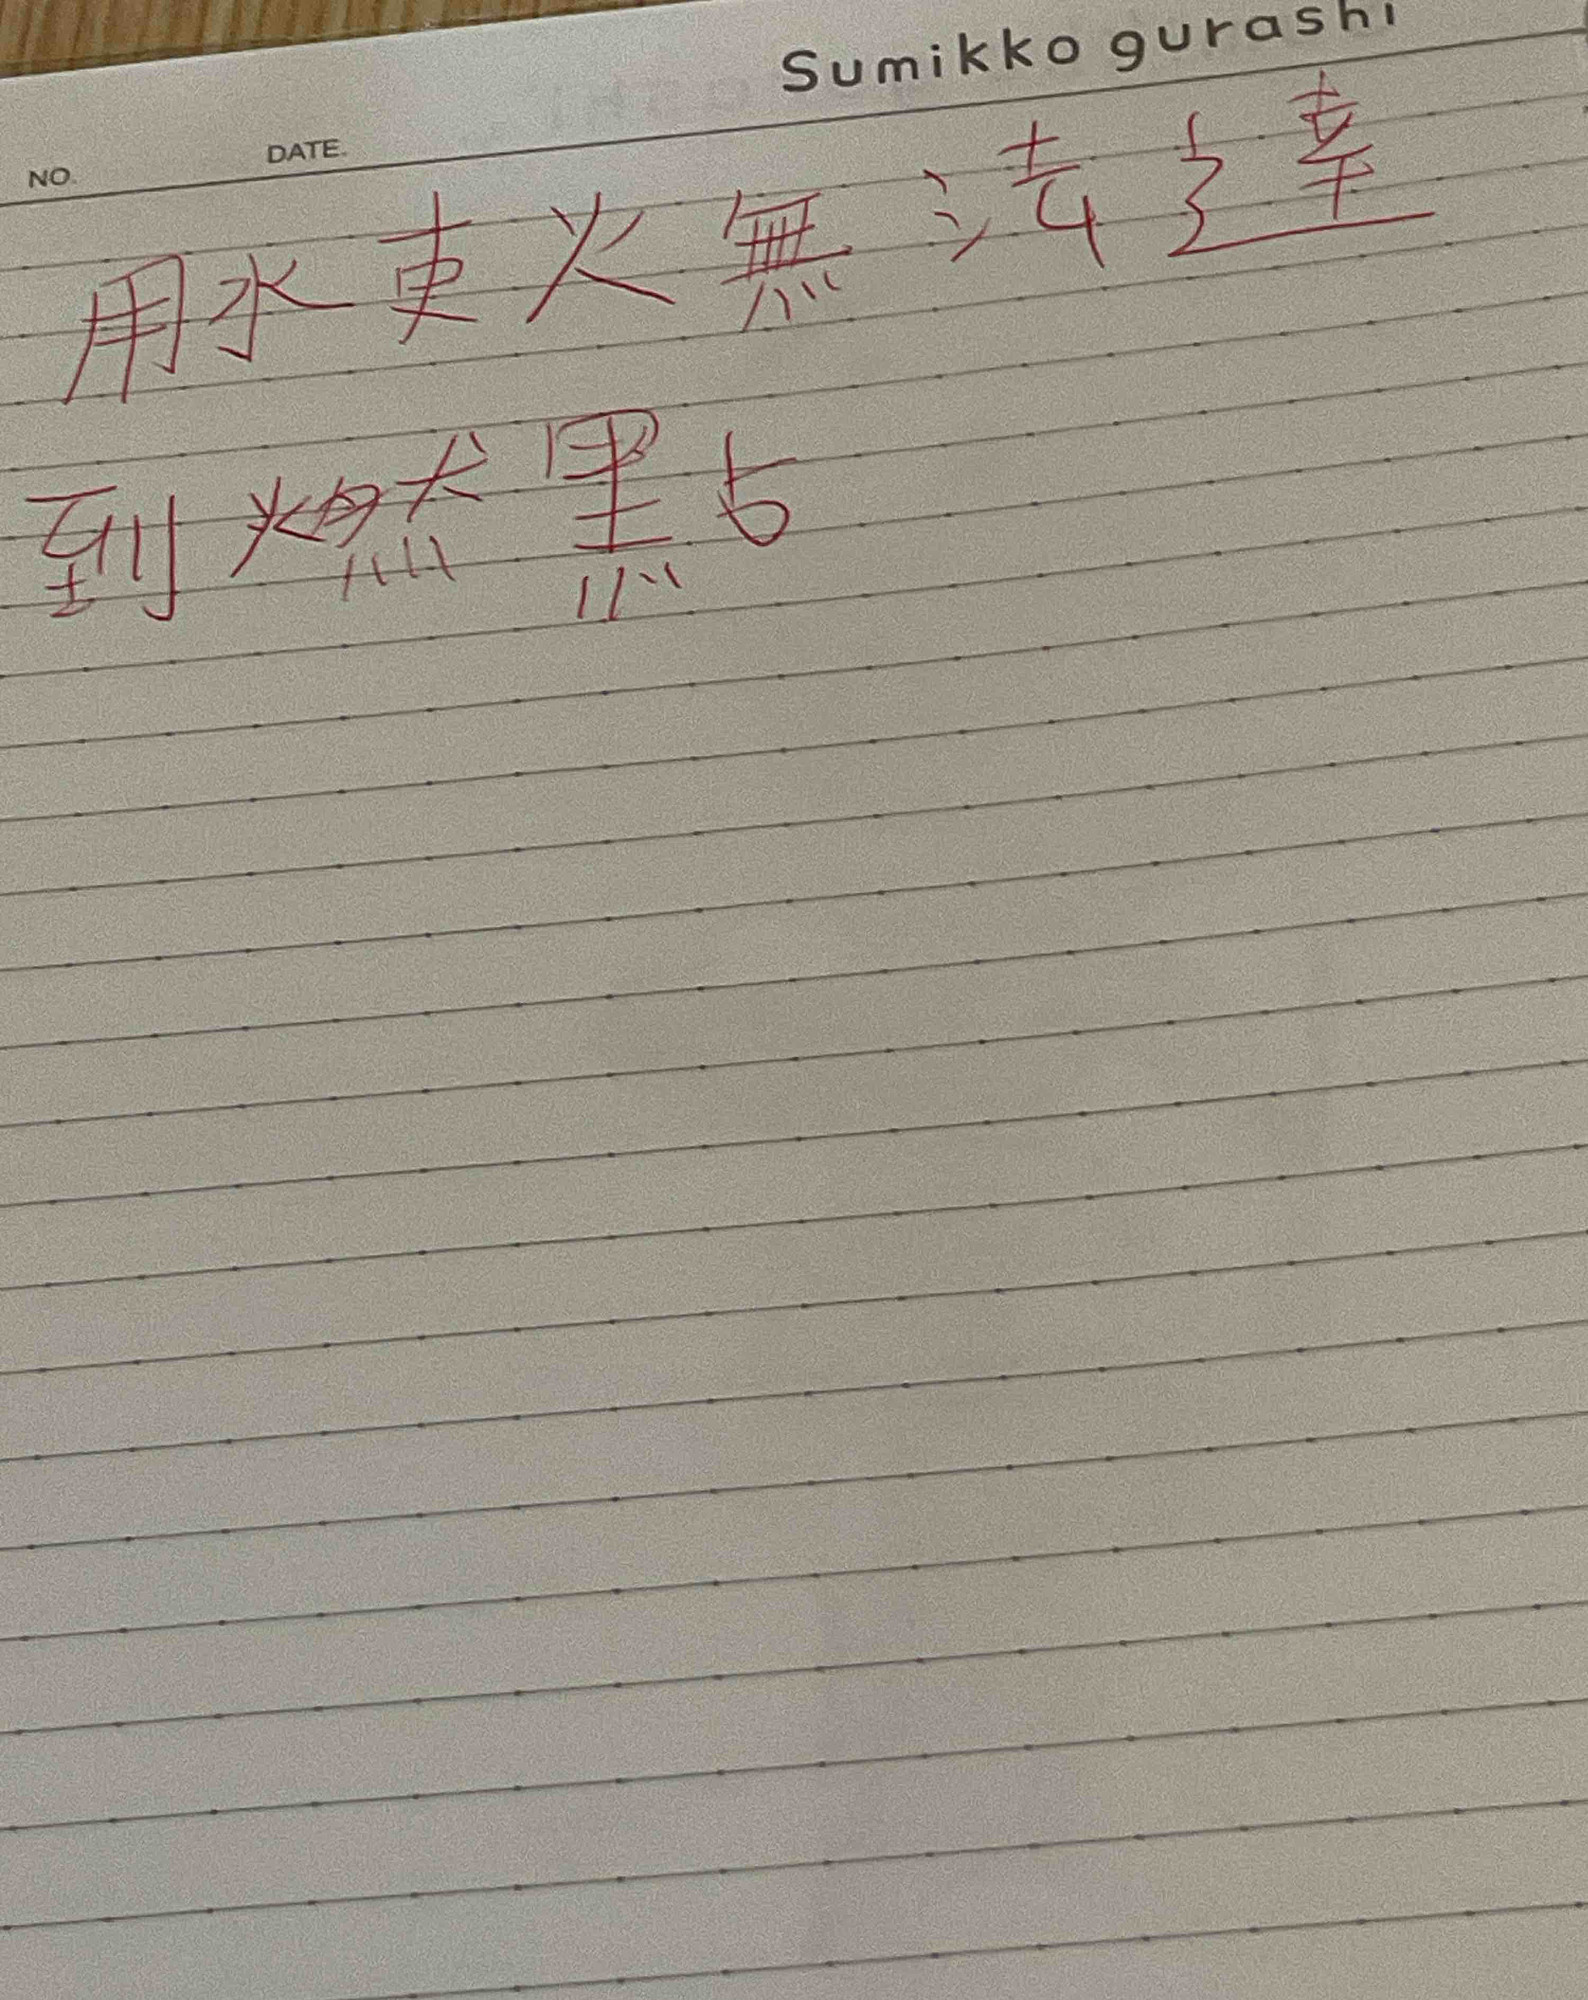 Sumikko gurashi
NO. DATE.
用水更火無法達
到燃點